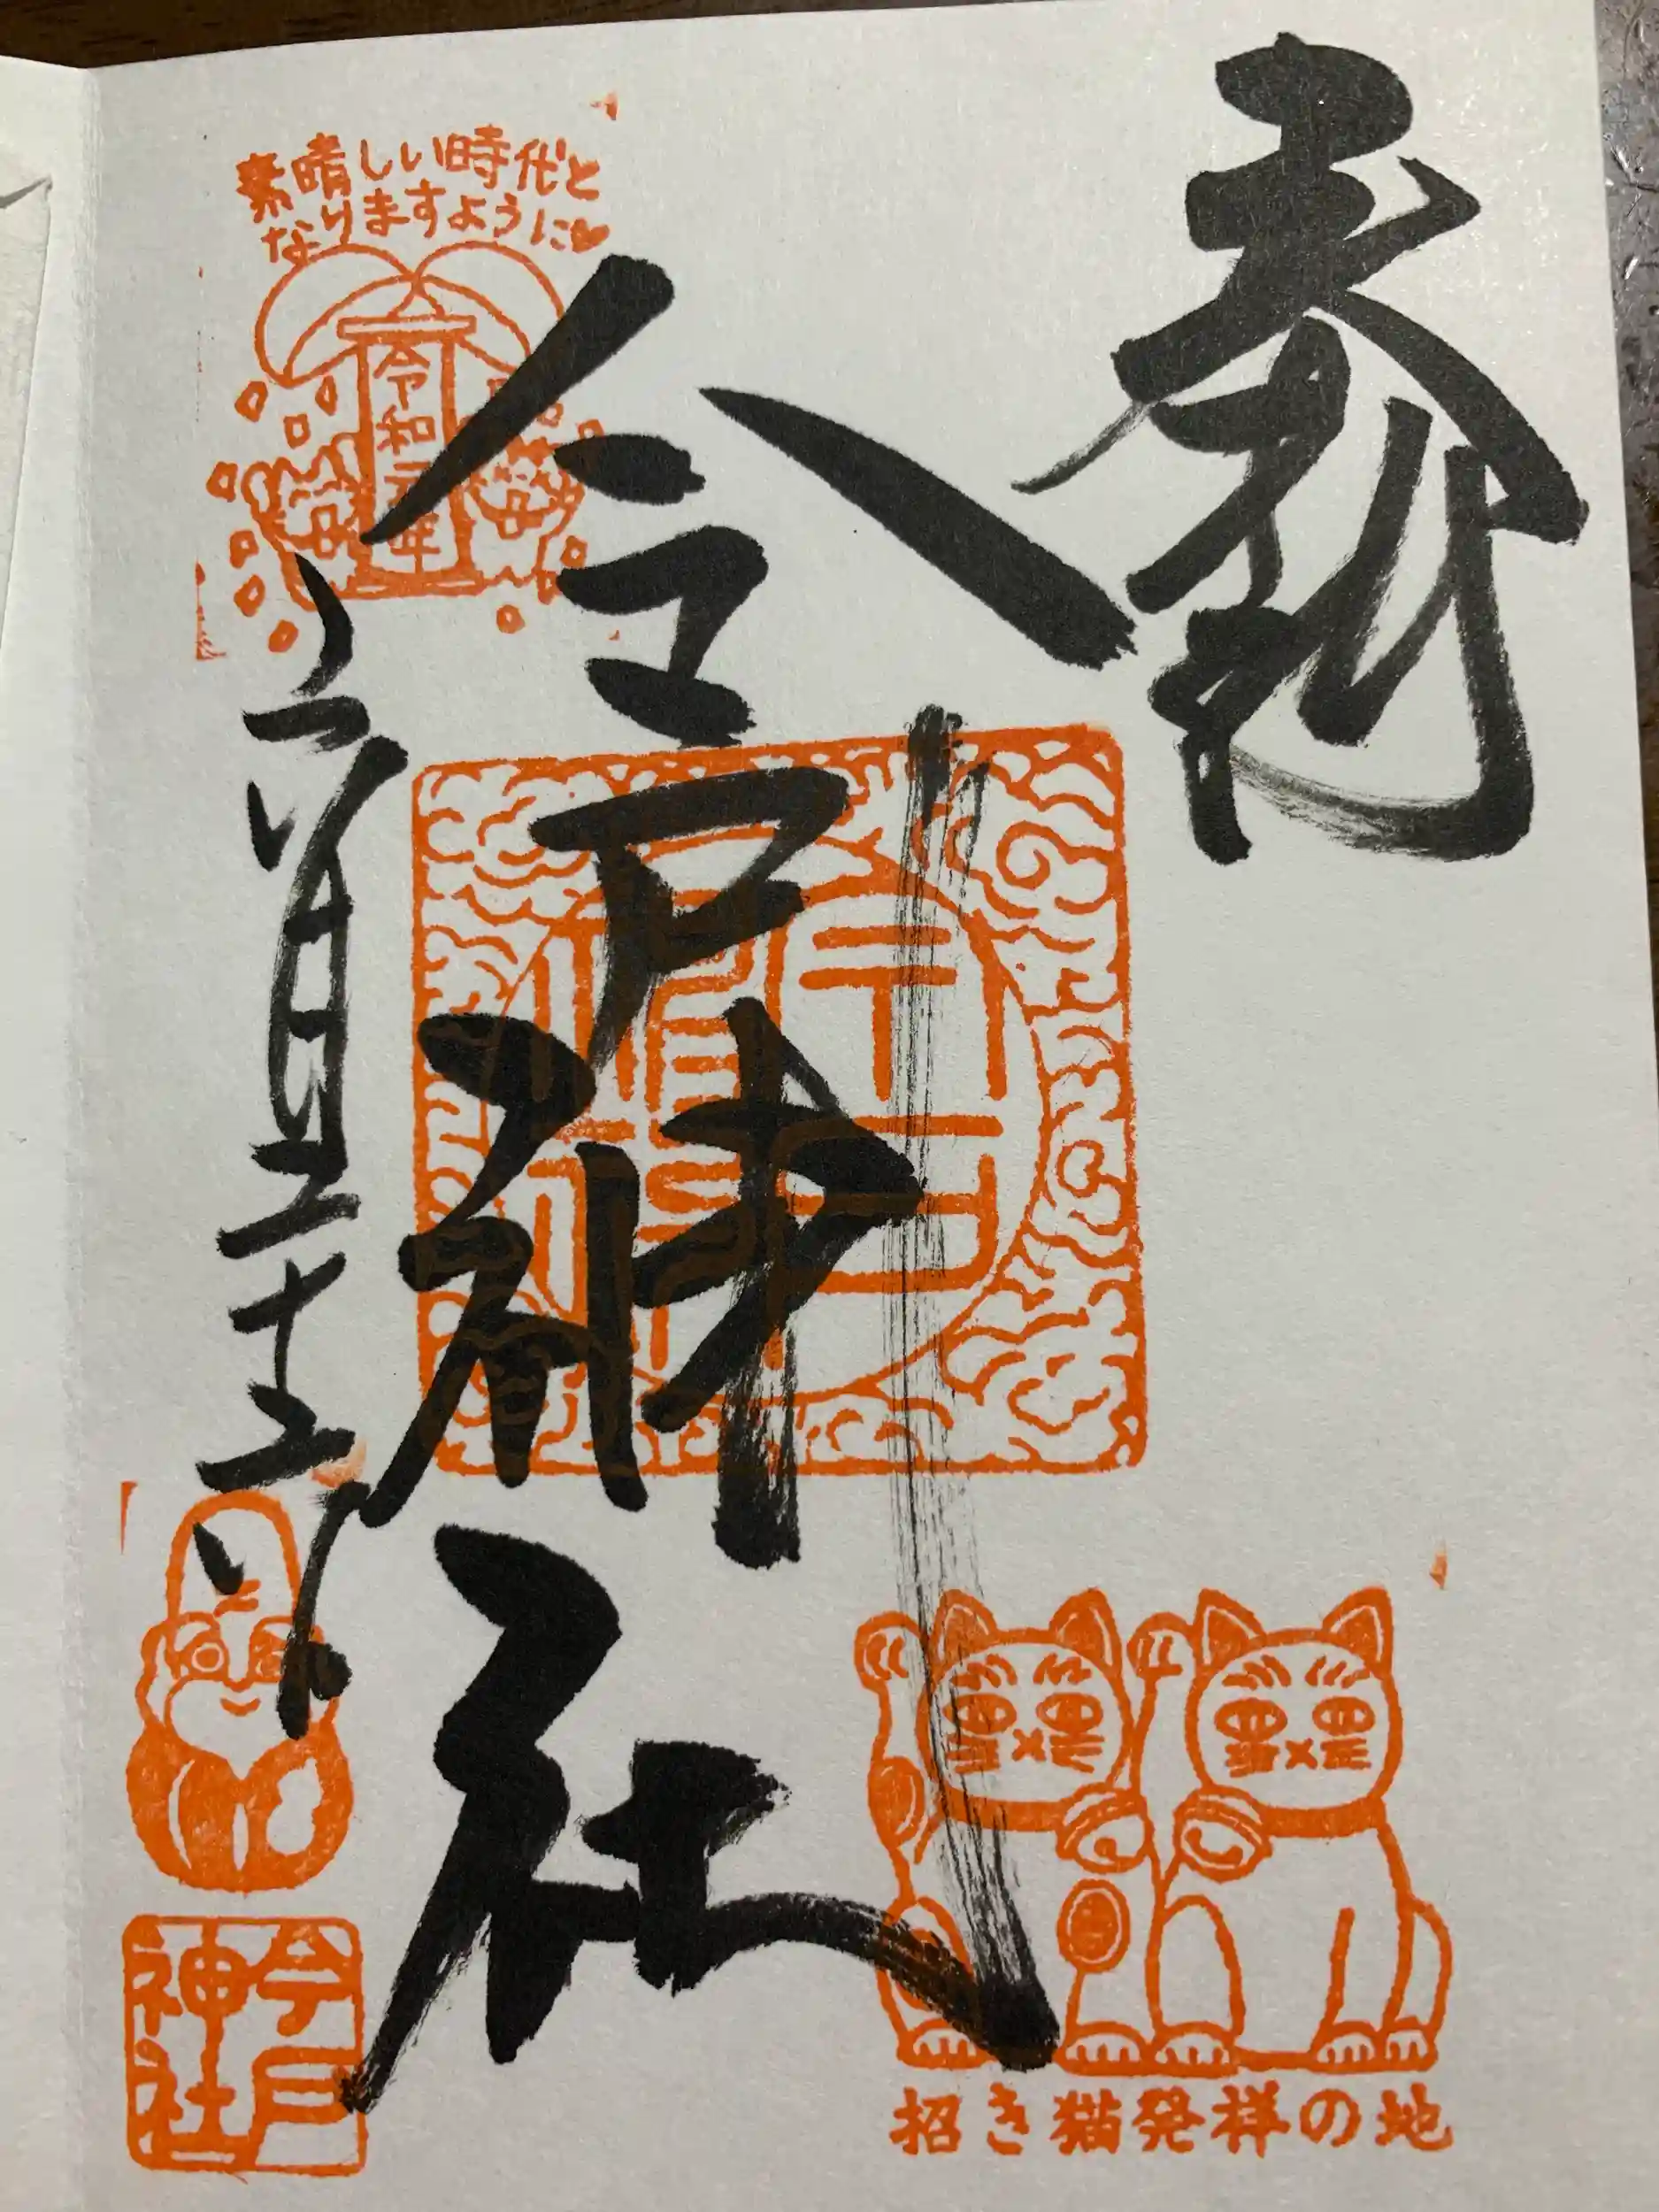 奉拝
今戸神社
素晴しい時代と
なりますように♥
令和元年
六月二十二日
今戸
神社
招き猫発祥の地